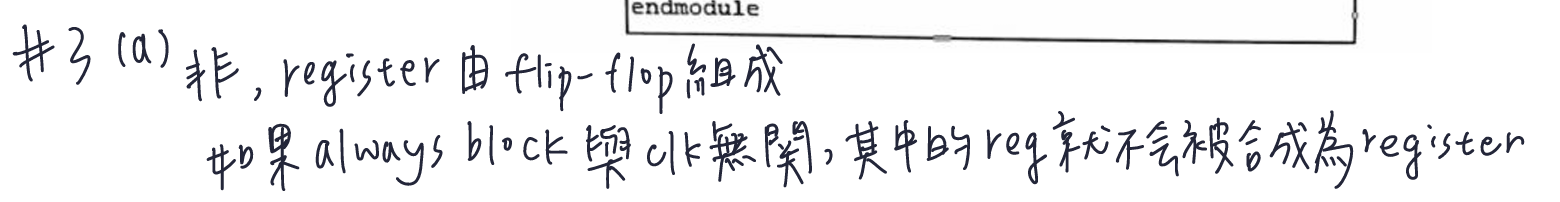 endmodule
#3 (a) 非, register 由 flip-flop 組成
如果 always block 與 clk 無關, 其中的 reg 就不会被合成為 register